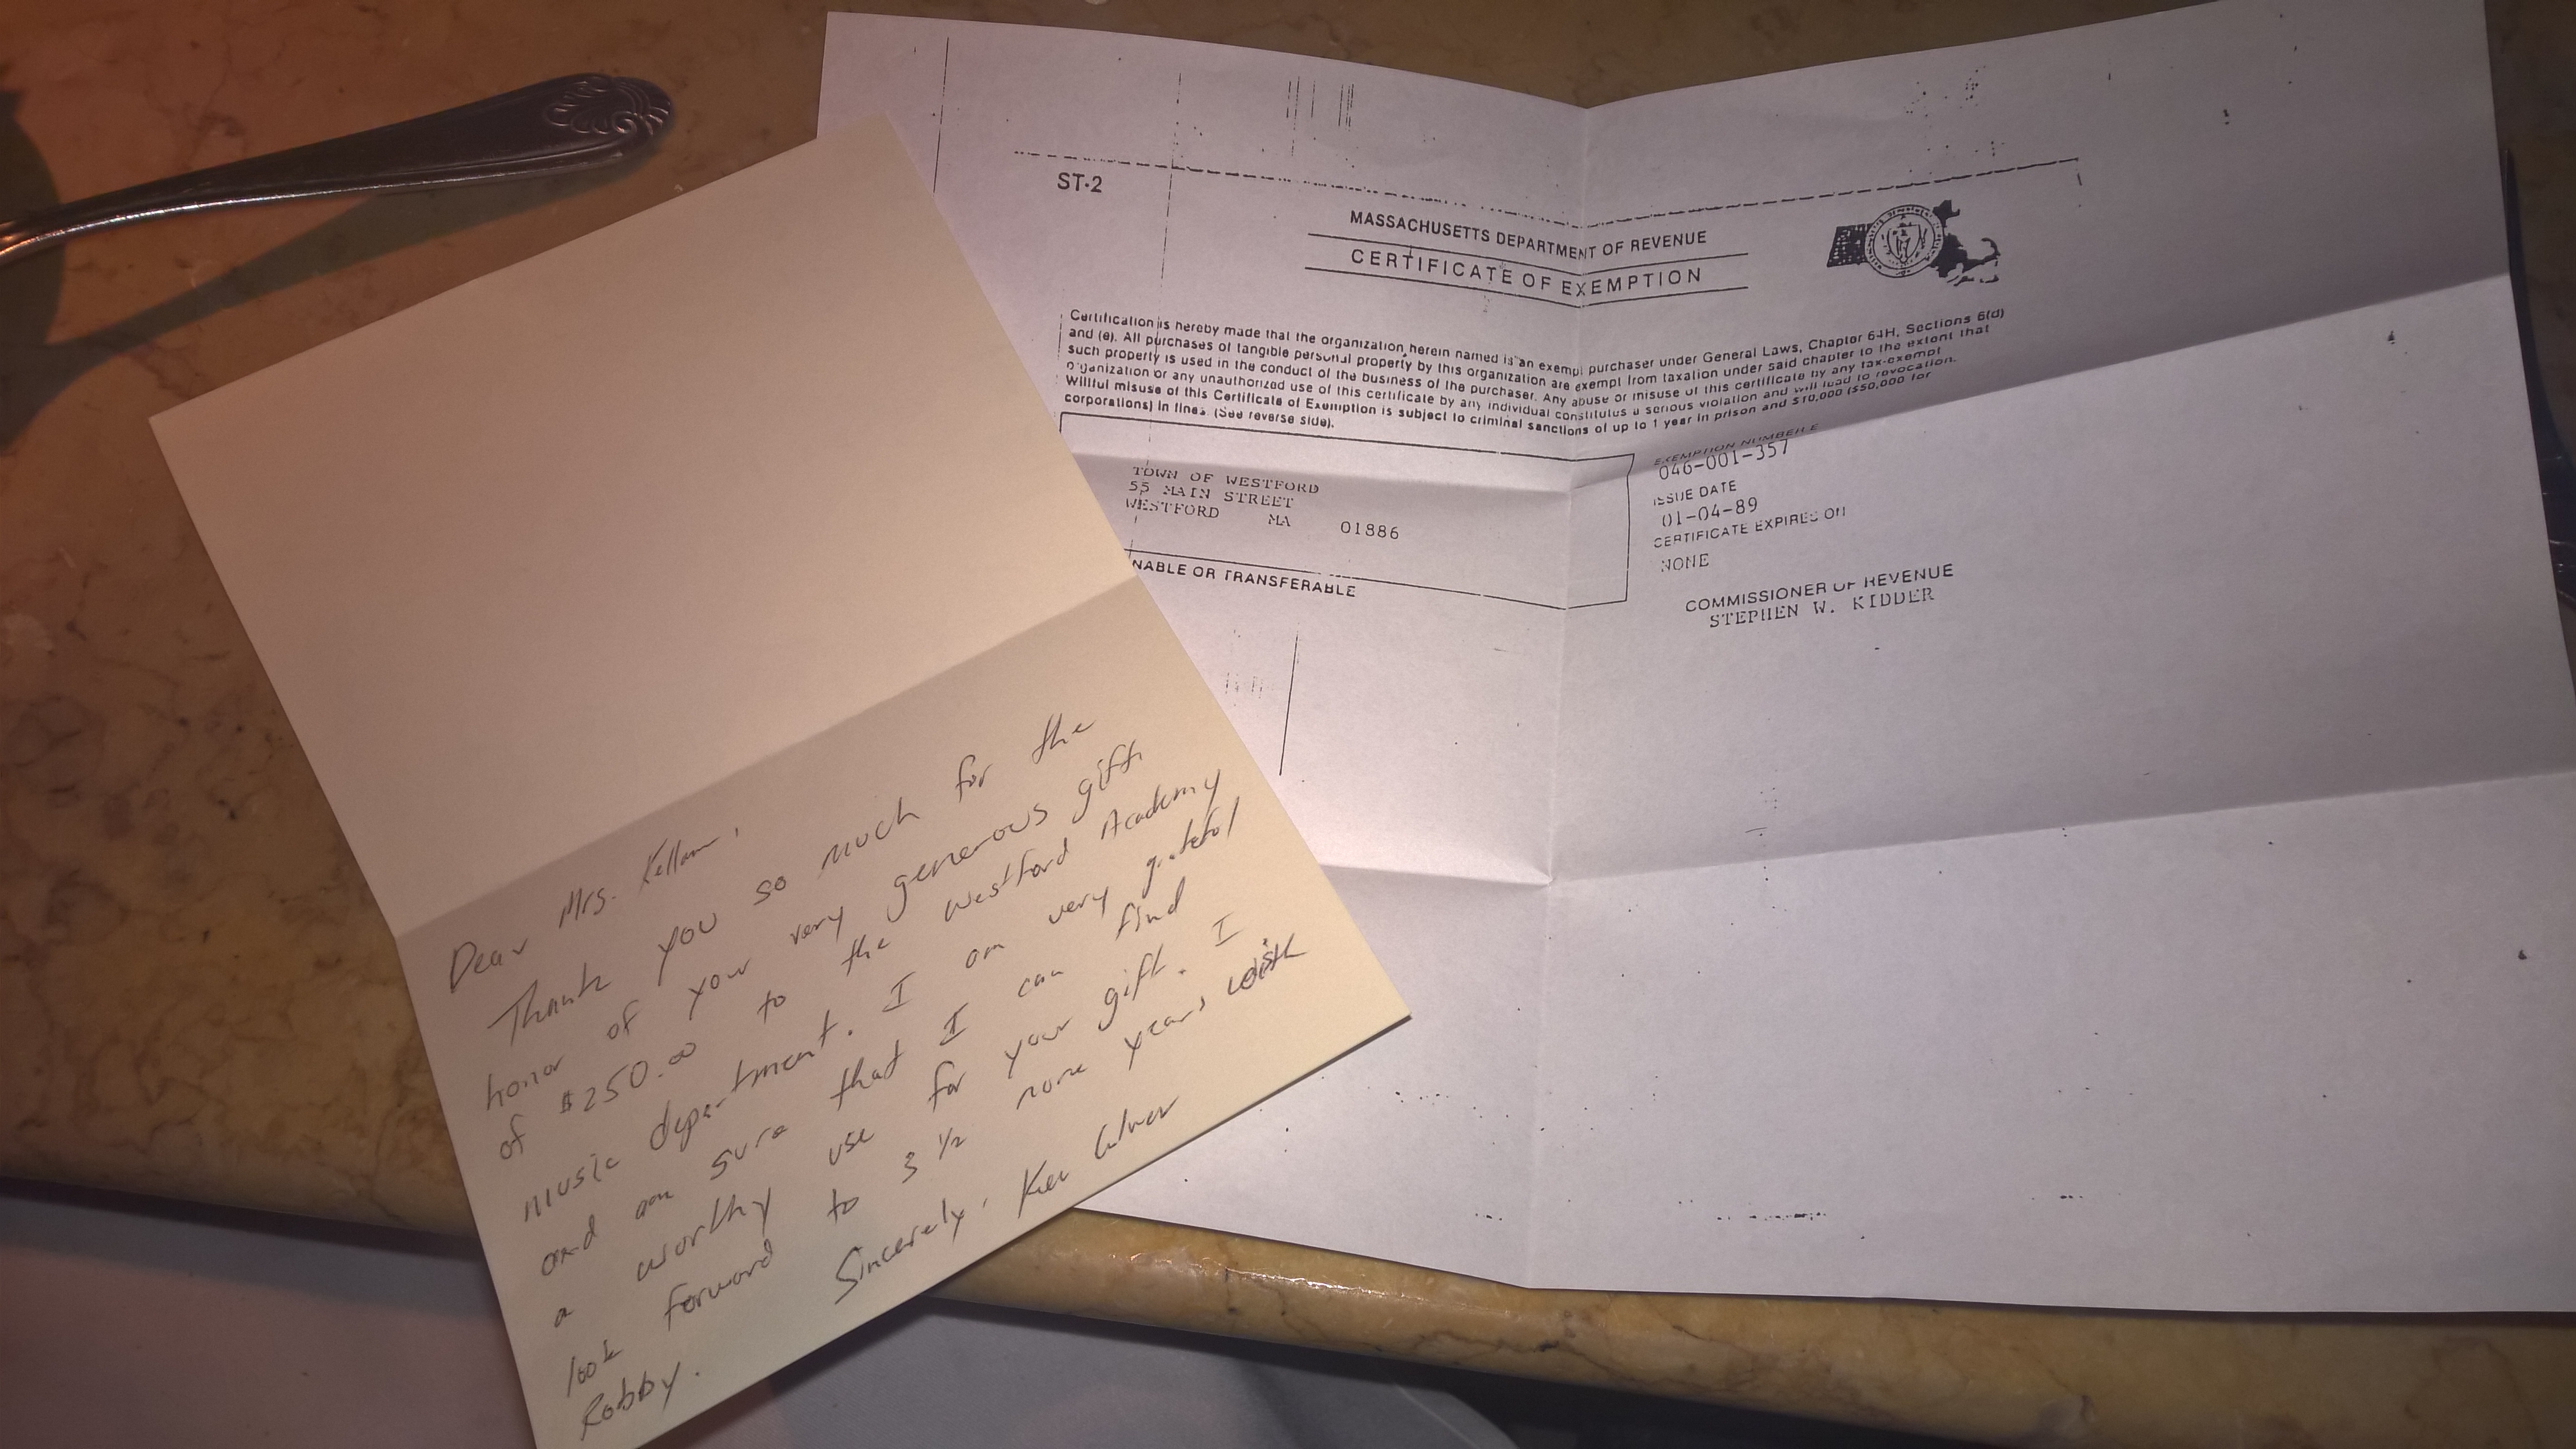 Dear Mrs. Kellam,
Thank you so much for the
honor of your very generous gift
of $250.00 to the Westford Academy
music department. I am very grateful
and am sure that I can find
a worthy use for your gift. I
look forward to 3 1/2 more years with
Robby.
Sincerely, Ken Culver
ST-2
MASSACHUSETTS DEPARTMENT OF REVENUE
CERTIFICATE OF EXEMPTION
Certification is hereby made that the organization herein named is an exempt purchaser under General Laws, Chapter 64H, Sections 6(d)
and (e). All purchases of tangible personal property by this organization are exempt from taxation under said chapter to the extent that
such property is used in the conduct of the business of the purchaser. Any abuse or misuse of this certificate by any tax-exempt
organization or any unauthorized use of this certificate by any individual constitutes a serious violation and will lead to revocation.
Willful misuse of this Certificate of Exemption is subject to criminal sanctions of up to 1 year in prison and $10,000 ($50,000 for
corporations) in fines. (See reverse side).
TOWN OF WESTFORD
55 MAIN STREET
WESTFORD MA 01886
NABLE OR TRANSFERABLE
EXEMPTION NUMBER E
046-001-357
ISSUE DATE
01-04-89
CERTIFICATE EXPIRES ON
NONE
COMMISSIONER OF REVENUE
STEPHEN W. KIDDER